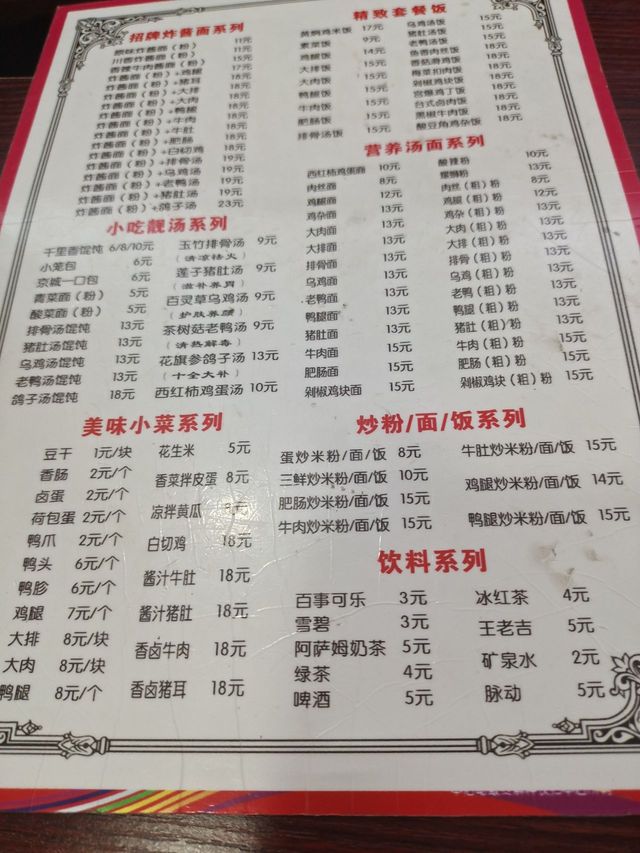 招牌炸酱面系列
原味炸酱面（粉） 11元
川香炸酱面（粉） 11元
香辣牛肉酱面（粉） 15元
炸酱面（粉）+鸡腿 18元
炸酱面（粉）+猪耳 18元
炸酱面（粉）+大排 18元
炸酱面（粉）+大肉 18元
炸酱面（粉）+鸭腿 18元
炸酱面（粉）+牛肉 18元
炸酱面（粉）+牛肚 18元
炸酱面（粉）+肥肠 18元
炸酱面（粉）+白切鸡 18元
炸酱面（粉）+排骨汤 19元
炸酱面（粉）+乌鸡汤 19元
炸酱面（粉）+老鸭汤 19元
炸酱面（粉）+猪肚汤 19元
炸酱面（粉）+鸽子汤 23元
精致套餐饭
黄焖鸡米饭 17元
素菜饭 9元
鸡腿饭 14元
大排饭 15元
大肉饭 15元
鸭腿饭 15元
牛肉饭 15元
肥肠饭 15元
排骨汤饭 15元
乌鸡汤饭 15元
猪肚汤饭 15元
老鸭汤饭 15元
鱼香肉丝饭 18元
香菇滑鸡饭 18元
梅菜扣肉饭 18元
剁椒鸡块饭 18元
宫爆鸡丁饭 18元
台式卤肉饭 18元
黑椒牛肉饭 18元
酸豆角鸡杂饭 18元
营养汤面系列
西红柿鸡蛋面 10元
肉丝面 8元
鸡腿面 12元
鸡杂面 13元
大肉面 13元
大排面 13元
排骨面 13元
乌鸡面 13元
老鸭面 13元
鸭腿面 13元
猪肚面 13元
牛肉面 15元
肥肠面 15元
剁椒鸡块面 15元
酸辣粉 10元
螺蛳粉 13元
肉丝（粗）粉 8元
鸡腿（粗）粉 12元
鸡杂（粗）粉 13元
大肉（粗）粉 13元
大排（粗）粉 13元
排骨（粗）粉 13元
乌鸡（粗）粉 13元
老鸭（粗）粉 13元
鸭腿（粗）粉 13元
猪肚（粗）粉 13元
牛肉（粗）粉 15元
肥肠（粗）粉 15元
剁椒鸡块（粗）粉 15元
小吃靓汤系列
千里香馄饨 6/8/10元
小笼包 6元
京城一口包 6元
青菜面（粉） 5元
酸菜面（粉） 5元
排骨汤馄饨 13元
猪肚汤馄饨 13元
乌鸡汤馄饨 13元
老鸭汤馄饨 13元
鸽子汤馄饨 18元
玉竹排骨汤 9元
（清凉祛火）
莲子猪肚汤 9元
（滋补养胃）
百灵草乌鸡汤 9元
（护肤养颜）
茶树菇老鸭汤 9元
（清热解毒）
花旗参鸽子汤 13元
（十全大补）
西红柿鸡蛋汤 10元
美味小菜系列
豆干 1元/块
香肠 2元/个
卤蛋 2元/个
荷包蛋 2元/个
鸭爪 2元/个
鸭头 6元/个
鸭胗 6元/个
鸡腿 7元/个
大排 8元/块
大肉 8元/块
鸭腿 8元/个
花生米 5元
香菜拌皮蛋 8元
凉拌黄瓜 元
白切鸡 18元
酱汁牛肚 18元
酱汁猪肚 18元
香卤牛肉 18元
香卤猪耳 18元
炒粉/面/饭系列
蛋炒米粉/面/饭 8元
三鲜炒米粉/面/饭 10元
肥肠炒米粉/面/饭 15元
牛肉炒米粉/面/饭 15元
牛肚炒米粉/面/饭 15元
鸡腿炒米粉/面/饭 14元
鸭腿炒米粉/面/饭 15元
饮料系列
百事可乐 3元
雪碧 3元
阿萨姆奶茶 5元
绿茶 4元
啤酒 5元
冰红茶 4元
王老吉 5元
矿泉水 2元
脉动 5元